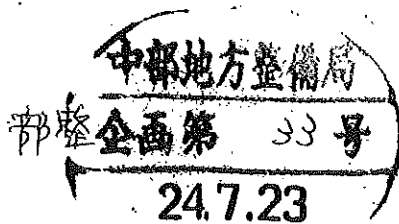 中部地方整備局
部整企画第 33 号
24.7.23